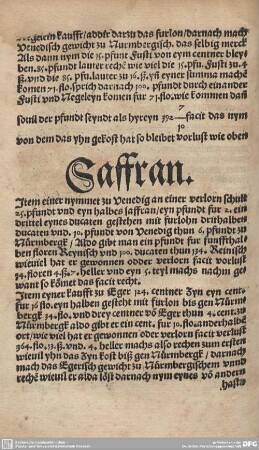 Negelein kaufft/addir darzu das furlon/darnach mach
Venedisch gewicht zu Nurmbergisch. das selbig merck
Als dann nym die 15. pfunt Fusti von eym centner bley-
ben. 85. pfundt lauter rechē wie viel die 15. pfu. Fusti zu. 4
ß. vnd die 85. pfu. lauter zu 16. ß. yß eyner summa machē
komen 71. flo. sprich darnach 100. pfundt durch einander
Fusti vnd Negeleyn komen fur 71. flo. wie kommen dañ
souil der pfundt seyndt als hyreyn 392 7/10 facit das nym
von dem das yhn gekost hat so bleibet vorlust wie oben
Saffran.
Item einer nymmet zu Venedig an einer verlorn schult
25. pfundt vnd eyn halben saffran/eyn pfundt fur 2. ein
drittel eynes ducaten gestehn mit furlohn dritthalben
ducaten vnd. 10. pfundt von Venedig thun 6. pfundt zu
Nürmbergk/Aldo gibt man ein pfundt fur funffthal
ben floren Reynisch vnd 100. ducaten thun 134. Reinisch
wieuiel hat er gewonen oder verlorn facit vorlust
floren 4. ß. 7. heller vnd eyn 5. teyl machs nachm ge
want so kömet das facit recht.
Item eyner kaufft zu Eger 124. centner Zyn eyn cent.
fur 16 flo. eyn halben gestehn mit furlon bis gen Nürm
bergk 34. flo. vnd drey centner vō Eger thun 4. cent. zu
Nürmbergk aldo gibt er ein cent. fur 10. flo. anderhalb
ort/wie viel hat er gewonnen oder verlorn facit verlust
flo. 13. ß. vnd. 4. heller machs also rechen zum ersten
wieuil yhn das Zyn kost biß gen Nürmbergk/darnach
mach das Egerisch gewicht zu Nürmbergischem vnnd
rechē wieuil er alda löst darnach nym eynes vō andern
hastu